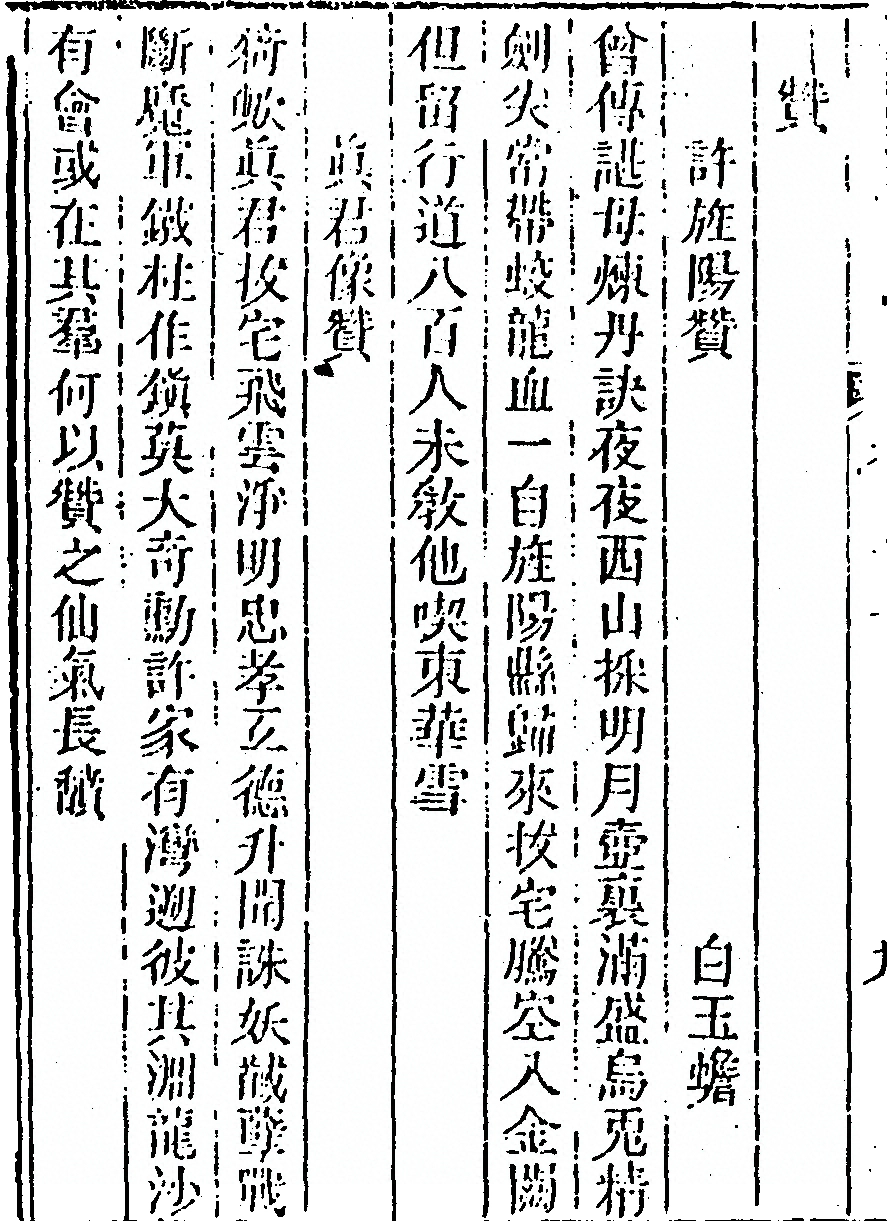 贊
許旌陽贊 白玉蟾
曾傳諶母煉丹訣夜夜西山採明月壺裏滿盛烏兎精
劍尖常帶蛟龍血一自旌陽縣歸來拔宅騰空入金闕
但留行道八百人未敎他喫東華雪
眞君像贊
猗歟眞君拔宅飛雲淨明忠孝立德升聞誅妖馘孽戰
斷魔軍鐵柱作鎖莫大奇勳許家有灣遡彼其淵龍沙
有會或在其羣何以贊之仙氣長